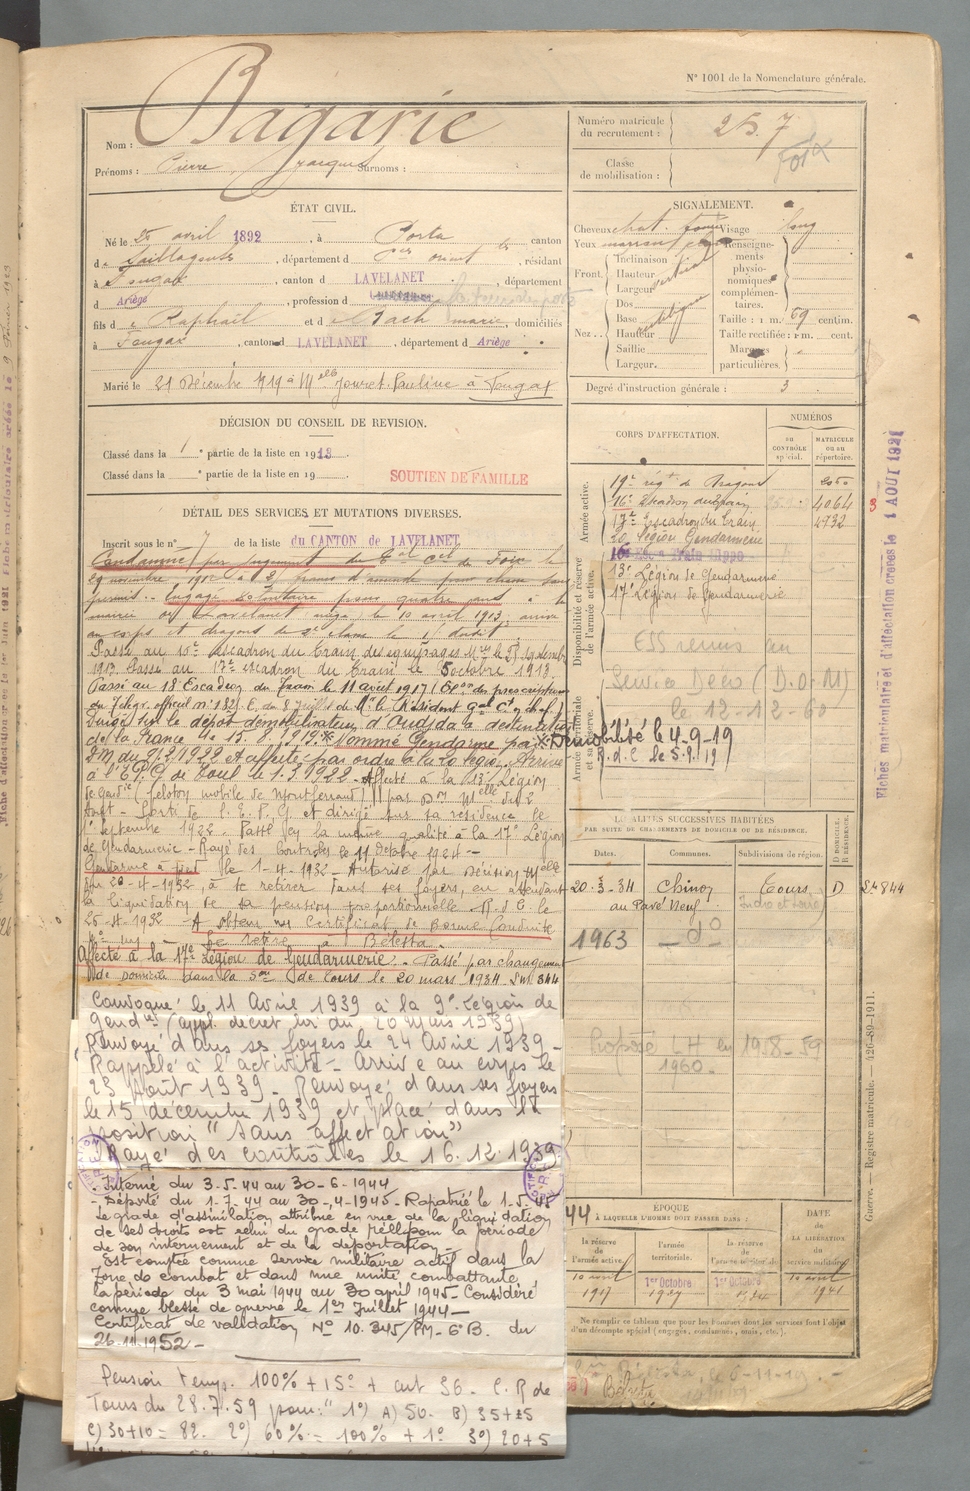 N° 1001 de la Nomenclature générale.
Nom : Bagarie
Prénoms : Pierre, Jacques Surnoms :
Numéro matricule du recrutement : 257
Foix
Classe de mobilisation :
ÉTAT CIVIL.
Né le 25 avril 1892, à Porta, canton
de Saillagouse, département des Pées orient les, résidant
à Fougax, canton d LAVELANET, département
d Ariège, profession d
fils de Raphaël et de Bach marie, domiciliés
à Fougax, canton d LAVELANET, département d Ariège
Marié le 21 Décembre 1919 à Melle Jouret Pauline à Fougax
SIGNALEMENT.
Cheveux chat. foncé Visage long
Yeux marront
Front. Inclinaison vertical
Hauteur
Largeur
Nez. Dos
Base
Hauteur
Saillie
Largeur.
Renseignements physionomiques complémentaires.
Taille : 1 m. 69 centim.
Taille rectifiée : 1 m. cent.
Marques particulières.
Degré d'instruction générale : 3
DÉCISION DU CONSEIL DE REVISION.
Classé dans la 1e partie de la liste en 1913.
Classé dans la e partie de la liste en 19
SOUTIEN DE FAMILLE
DÉTAIL DES SERVICES ET MUTATIONS DIVERSES.
Inscrit sous le n° 7 de la liste du CANTON de LAVELANET
Condamné par jugement du Tal Cel de Foix le
29 novembre 1912 à 2 francs d'amende pour chasse sans
permis. - Engagé volontaire pour quatre ans à la
mairie de Lavelanet le 10 avril 1913, arrivé
au corps et dragons de 2e classe le 11 dudit.
Passé au 16e Escadron du Train des équipages Mres le 29 septembre
1913. Passé au 17e escadron du Train le 5 octobre 1913
Passé au 18 Escadron du Train le 11 aout 1917 (Eton des prescriptions
du Télégr. officiel n° 1321 E. du 8 Juillet de Mr le Président Gal Ct en chef)
Dirigé sur le dépôt démobilisateur d'Oudjda à destination
de la France le 15.8.1919.* Nommé Gendarme par
DM du 9.2.1922 et affecté par ordre à la 20 légion. Arrivé
à l'EPG de Toul le 1.3.1922 - Affecté à la 13e Légion
de Gardie (peloton mobile de Montferrand) par Don Mlle du 2
Aout - Sorti de l'E.P.G. et dirigé sur sa résidence le
1er septembre 1922 - Passé en la même qualité à la 17e Légion
de Gendarmerie - Rayé des Controles le 11 Octobre 1924 -
Gendarme à pied le 1-4-1932 - Autorisé par Décision Mlle
du 20-4-1932, à se retirer dans ses foyers, en attendant
la liquidation de sa pension proportionnelle R.d C. le
25-4-1932 - A obtenu un Certificat de Bonne Conduite
Se retire à Bélesta.
Affecté à la 17e Légion de Gendarmerie. - Passé par changement
de domicile dans la son de Tours le 20 mars 1934 Lnt 844
Convoqué le 11 Avril 1939 à la 9e Légion de
Gendie (appl. décret loi du 20 Mars 1939)
Renvoyé dans ses foyers le 24 Avril 1939 -
Rappelé à l'activité - Arrivé au corps le
23 Août 1939 - Renvoyé dans ses foyers
le 15 décembre 1939 et placé dans la
position "Sans affectation"
Rayé des contrôles le 16.12.1939.
- Interné du 3-5-44 au 30-6-1944
- Déporté du 1-7-44 au 30-4-1945 - Rapatrié le 1-5-45
Le grade d'assimilation attribué en vue de la liquidation
de ses droits est celui du grade réel pour la période
de son internement et de la déportation -
Est compté comme service militaire actif dans la
zone de combat et dans une unité combattante
la période du 3 mai 1944 au 30 avril 1945 - Considéré
comme blessé de guerre le 1er Juillet 1944 -
Certificat de validation N° 10.345/PM-6°B. du
26.11.1952 -
Pension temp. 100% + 15° + art 36 - C.R de
Tours du 28.7.59 pour : " 1°) A) 50. B) 35+15
C) 30+10 = 82. 2°) 60% = 100% + 1° 3°) 20+5
CORPS D'AFFECTATION.
NUMÉROS
AU CONTRÔLE spécial.
MATRICULE OU AU RÉPERTOIRE.
Armée active.
19e régt de Dragons
16e Escadron du Train 4064
17e Escadron du Train 4732
20 Légion Gendarmerie
Disponibilité et réserve de l'armée active.
16e Esc. Train Hippo
13e Légion de Gendarmerie
17e Légion de Gendarmerie
ESS remis au
Service Deco (D.O.M)
le 12-12-60
Armée territoriale et sa réserve.
*Démobilisé le 4-9-19
R.d.C le 5.9.19
LOCALITÉS SUCCESSIVES HABITÉES
PAR SUITE DE CHANGEMENTS DE DOMICILE OU DE RÉSIDENCE.
Dates. Communes. Subdivisions de région. D DOMICILE. R RÉSIDENCE.
20-3-34 Chinon Tours D Lnt 844
au Pavé Neuf Indre et Loire
1963 - d° -
Proposé LH en 1958-59
1960 -
44
ÉPOQUE
À LAQUELLE L'HOMME DOIT PASSER DANS :
la réserve de l'armée active
l'armée territoriale.
la réserve de l'armée territoriale
DATE DE LA LIBÉRATION du service militaire
10 avril 1917
1er Octobre
1er Octobre
10 avril 1941
Ne remplir ce tableau que pour les hommes dont les services font l'objet
d'un décompte spécial (engagés, condamnés, omis, etc.).
3
Fiches matriculaire et d'affectation créées le 1 AOUT 1921
Guerre. — Registre matricule. — 426-89-1911.